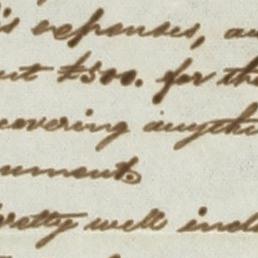 's expenses, a
ut £500. for th
covering anythi
ument.
pretty well ind